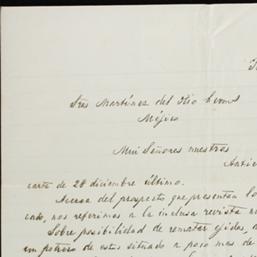 Sres Martínez del Rio hermos
Méjico
Muy Señores nuestros
carta de 28 diciembre último.
Acerca del prospecto que presentan lo
cado, nos referimos a la inclusa revista
Sobre posibilidad de rematar ejidos,
un potrero de estos situado a poco mas de